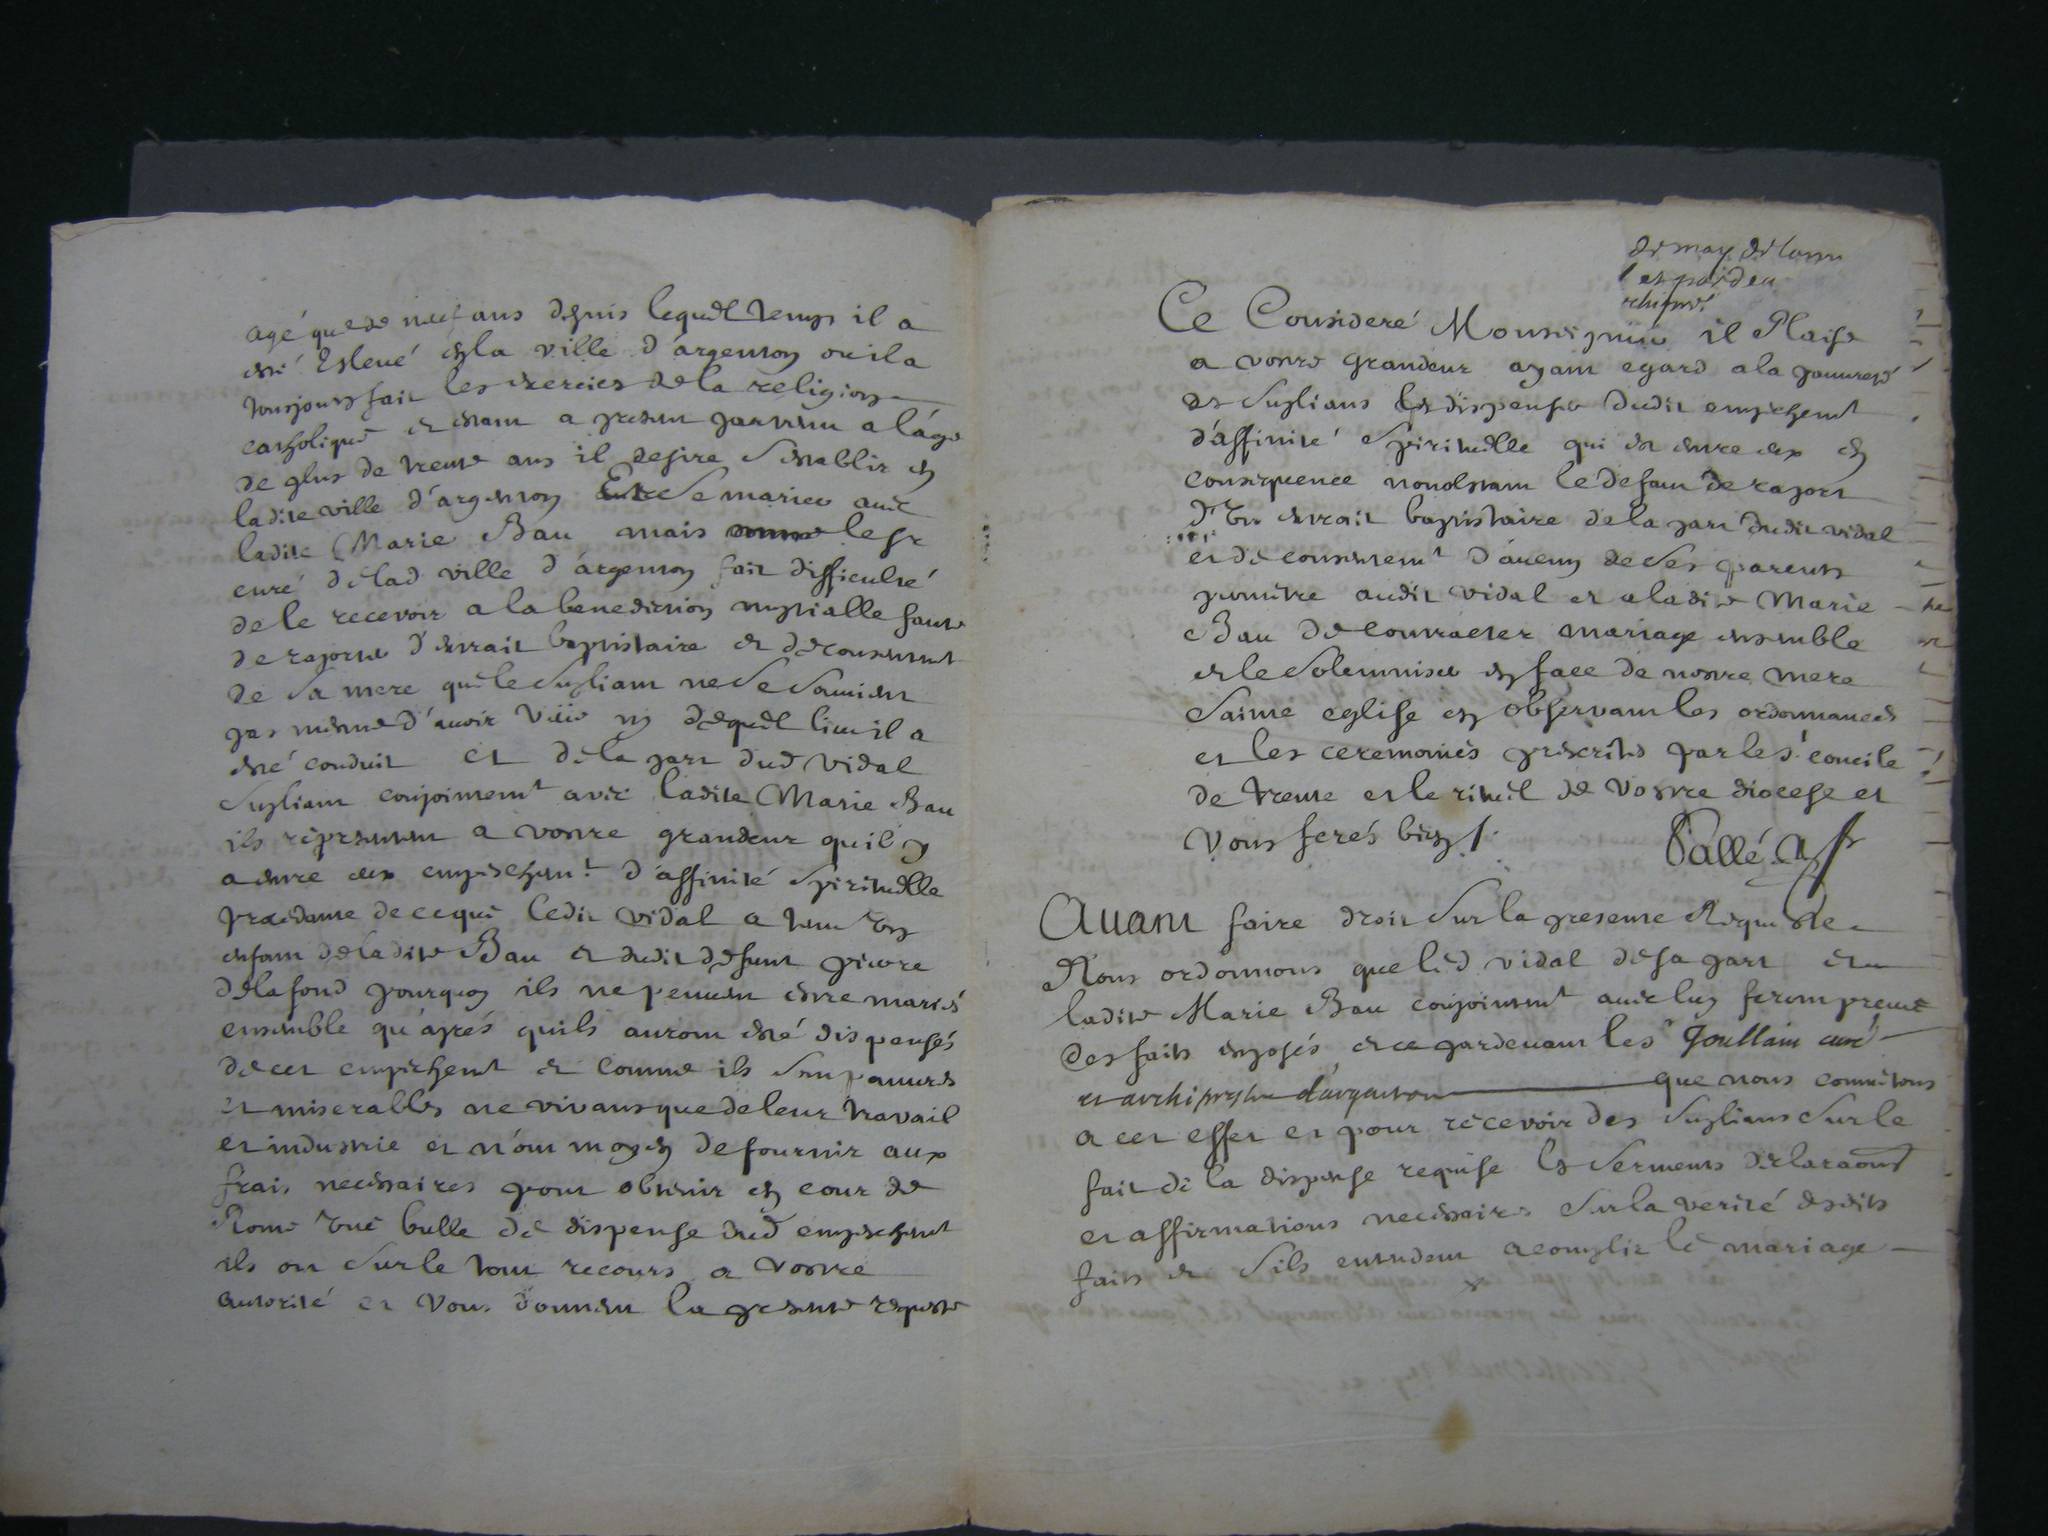 agé que de neuf ans depuis lequel temps il a
esté Eslevé en la ville d'argenton ou il a
tousjours fait les exercices de la religion
catholique et estant a present parvenu a l'age
de plus de trente ans il desire s'establir en
ladite ville d'argenton se marier avec
ladite Marie Bau mais le sr
curé de lad ville d'argenton fait difficulté
de le recevoir a la benediction nuptialle faute
de raporter d'extrait baptistaire et de consentemt
de sa mere que le supliant ne se souvient
pas mesme d'avoir veüe ny de quel lieu il a
esté conduit et de la part dud vidal
supliant conjointemt avec ladite Marie Bau
ils representent a vostre grandeur qu'il y
a entre eux empeschemt d'affinité spirituelle
procedante de ce que ledit vidal a tenu un
enfant de ladite Bau et dudit defunt pierre
delafond pourquoy ils ne peuvent estre mariés
ensemble qu'aprés quils auront esté dispensés
de cet empeschemt et comme ils sont pauvres
et miserables ne vivans que de leur travail
et industrie et n'ont moyen de fournir aux
frais necessaires pour obtenir en cour de
Rome une bulle de dispense dud empeschemt
ils ont sur le tout recours a vostre
autorité et vous donnent la presente requeste
de may
Ce Consideré Monseigneur il Plaise
a vostre grandeur ayant egard a la pauvreté
des suplians les dispenser dudit empeschemt
d'affinité spirituelle qui est entre eux en
consequence nonobstant le defaut de raport
d'un extrait baptistaire de la part dudit vidal
et de consentemt d'aucun de ses parents
permettre audit vidal et a ladite Marie
Bau de contracter mariage ensemble
et le solemniser en face de nostre mere
sainte eglise en observant les ordonnances
et les ceremonies prescrites par le st concile
de trente et le rituel de vostre diocese et
vous ferés bien /.
Pallé
Avant faire droit sur la presente Requeste
Nous ordonnons que led vidal de sa part et
ladite Marie Bau conjointemt avec luy feront preuve
des faits exposés et ce pardevant le sr Joullain curé
et archiprestre d'argenton que nous commettons
a cet effet et pour recevoir des suplians sur le
fait de la dispense requise les serments declaraons
et affirmations necessaires sur la verité desdits
faits et s'ils entendent acomplir le mariage